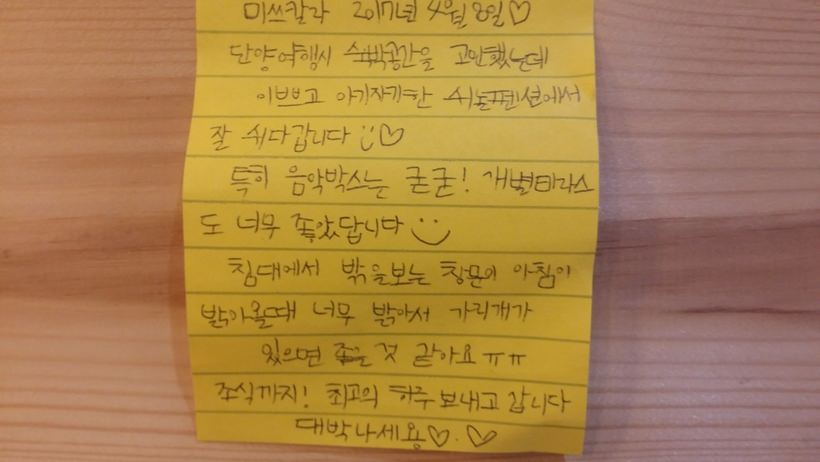 미쓰칼라 2017년 4월 2일♡
단양여행시 숙박공간을 고민했는데
이쁘고 아기자기한 쉬놀펜션에서
잘 쉬다갑니다 :)♡
특히 음악박스는 굳굳! 개별테라스
도 너무 좋았답니다 :)
침대에서 밖을보는 창문이 아침이
밝아올때 너무 밝아서 가리개가
있으면 좋을 것 같아요 ㅠㅠ
조식까지! 최고의 하루 보내고 갑니다
대박나세용♡.♡